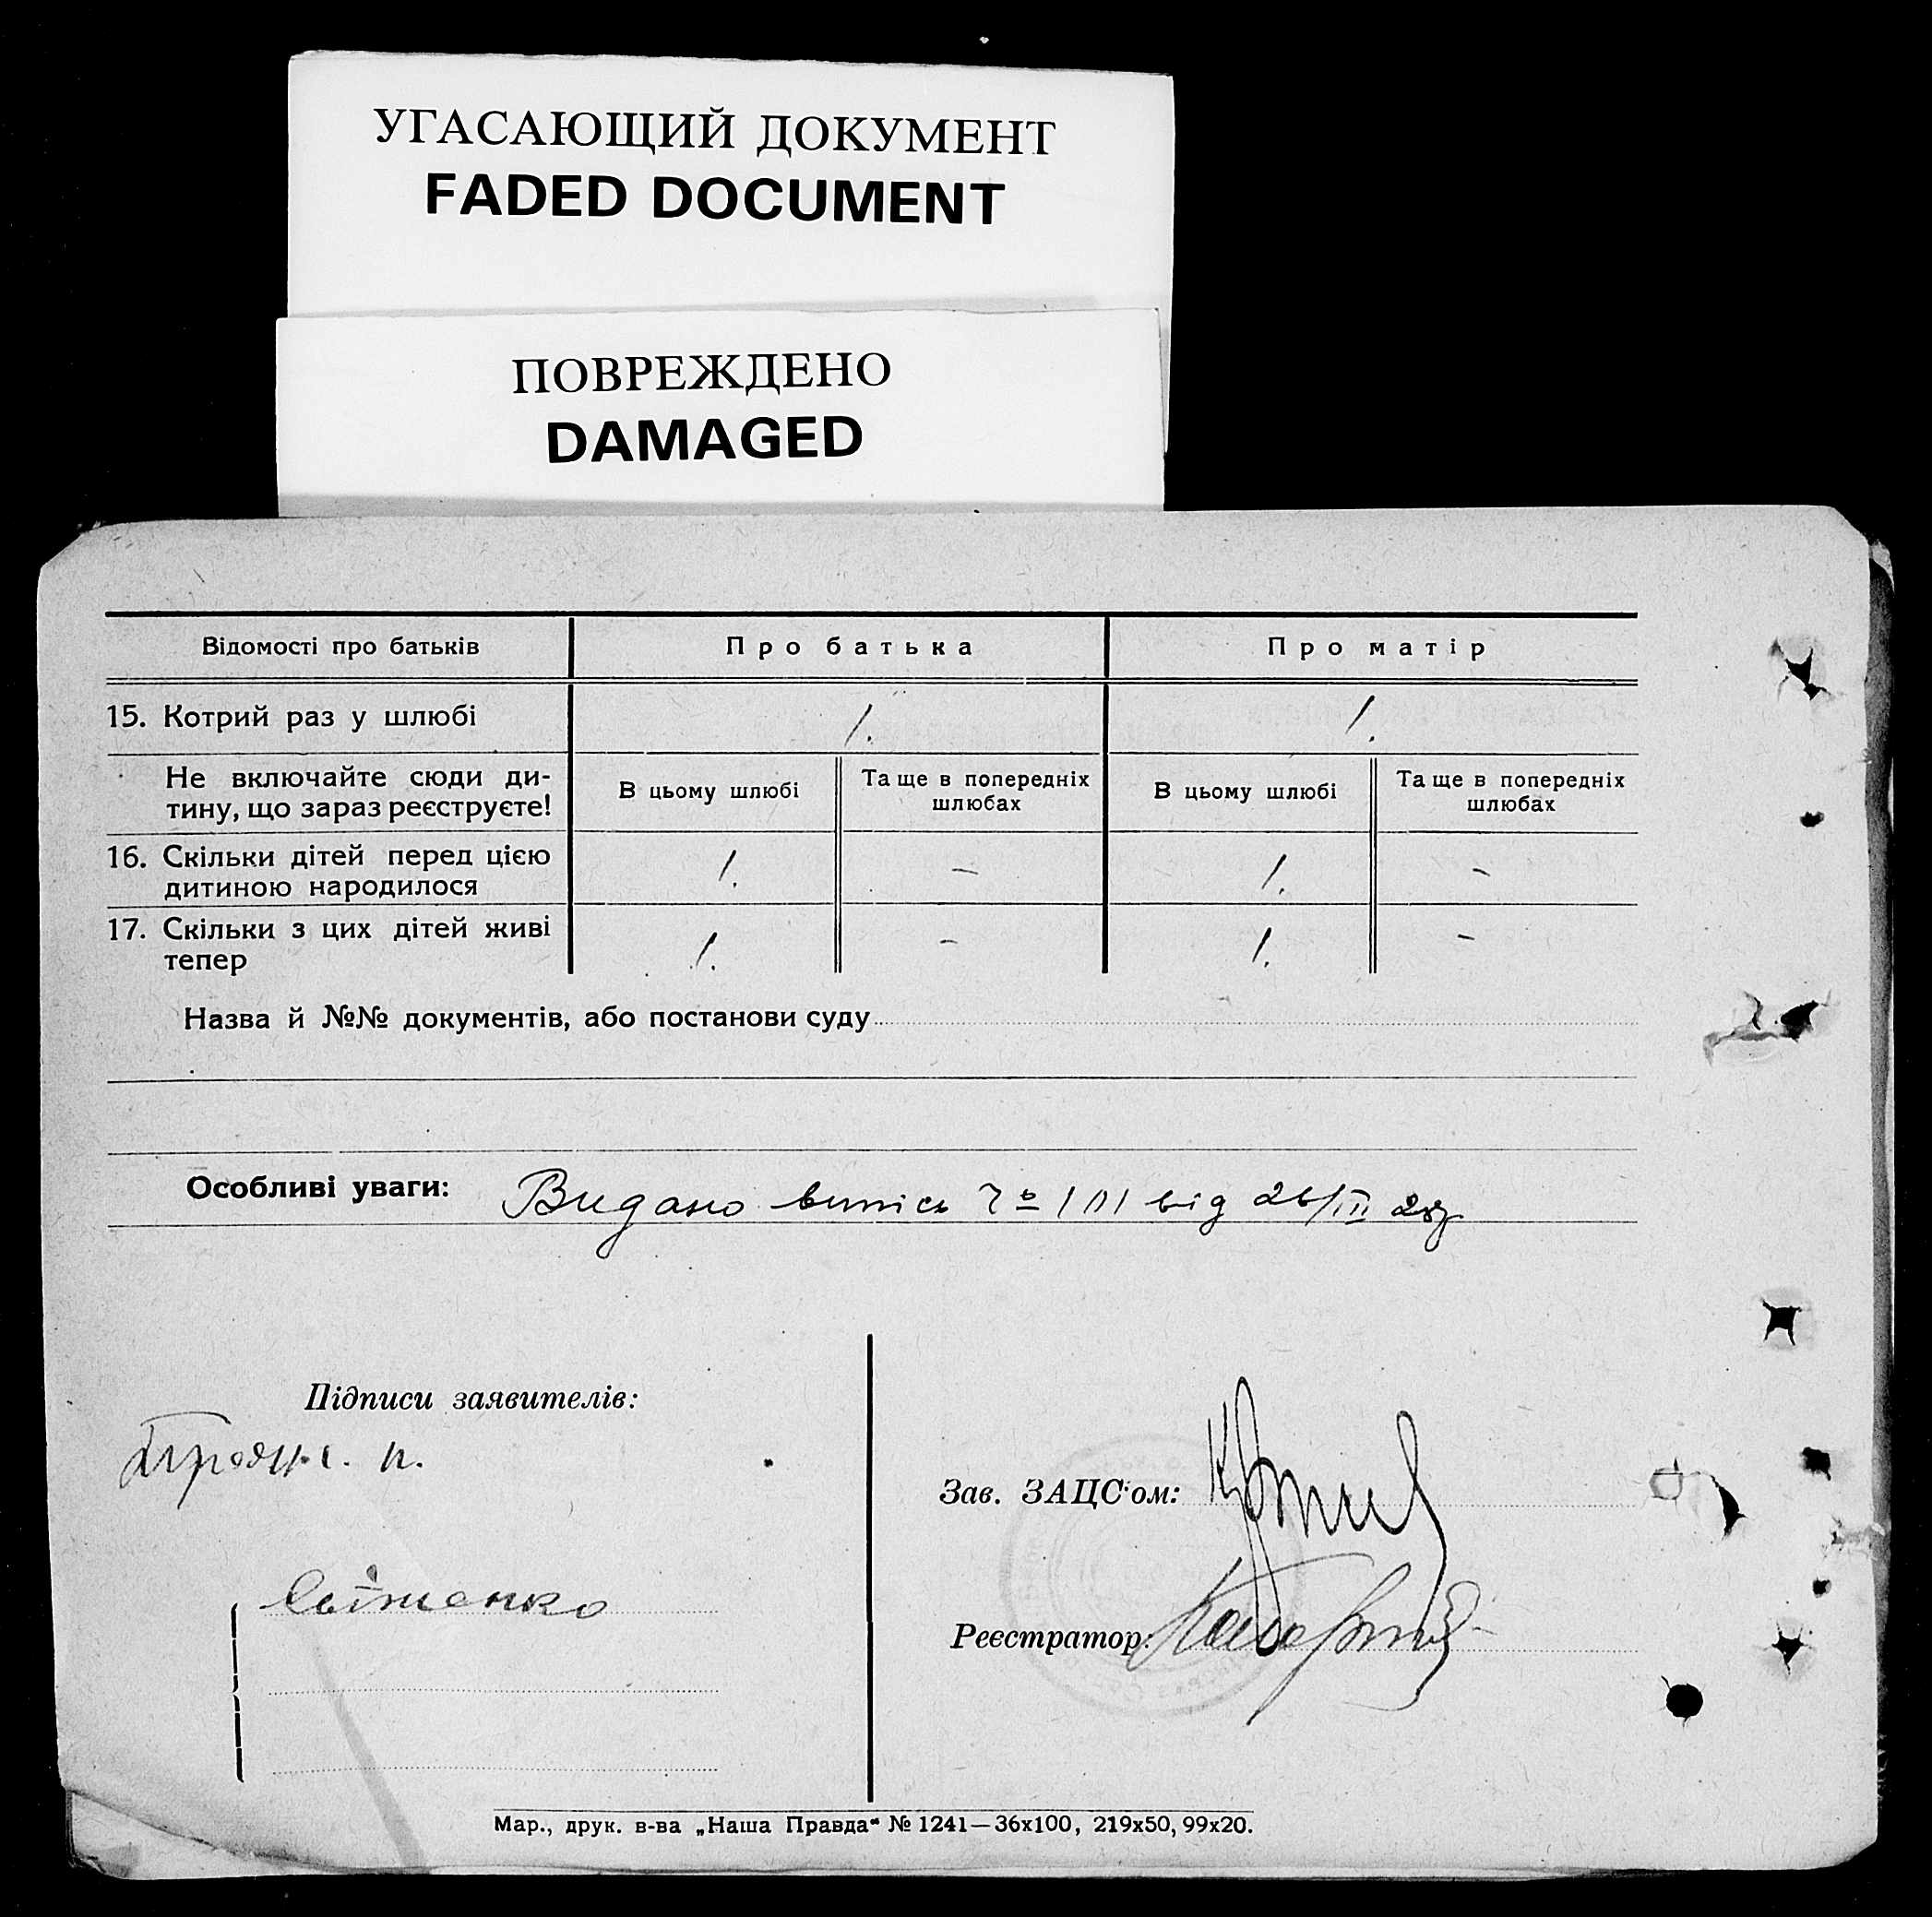 УГАСАЮЩИЙ ДОКУМЕНТ
FADED DOCUMENT
ПОВРЕЖДЕНО
DAMAGED
Відомості про батьків Про батька Про матір
15. Котрий раз у шлюбі 1. 1.
Не включайте сюди ди-
тину, що зараз реєструєте!
В цьому шлюбі
Та ще в попередніх
шлюбах
В цьому шлюбі
Та ще в попередніх
шлюбах
16. Скільки дітей перед цією
дитиною народилося
1. – 1. –
17. Скільки з цих дітей живі
тепер
1. – 1. –
Назва й №№ документів, або постанови суду
Особливі уваги: Видано випісь від 26/III 28р
Підписи заявителів:
Зав. ЗАЦС'ом:
Реєстратор:
Мар., друк. в-ва „Наша Правда“ № 1241—36х100, 219х50, 99х20.